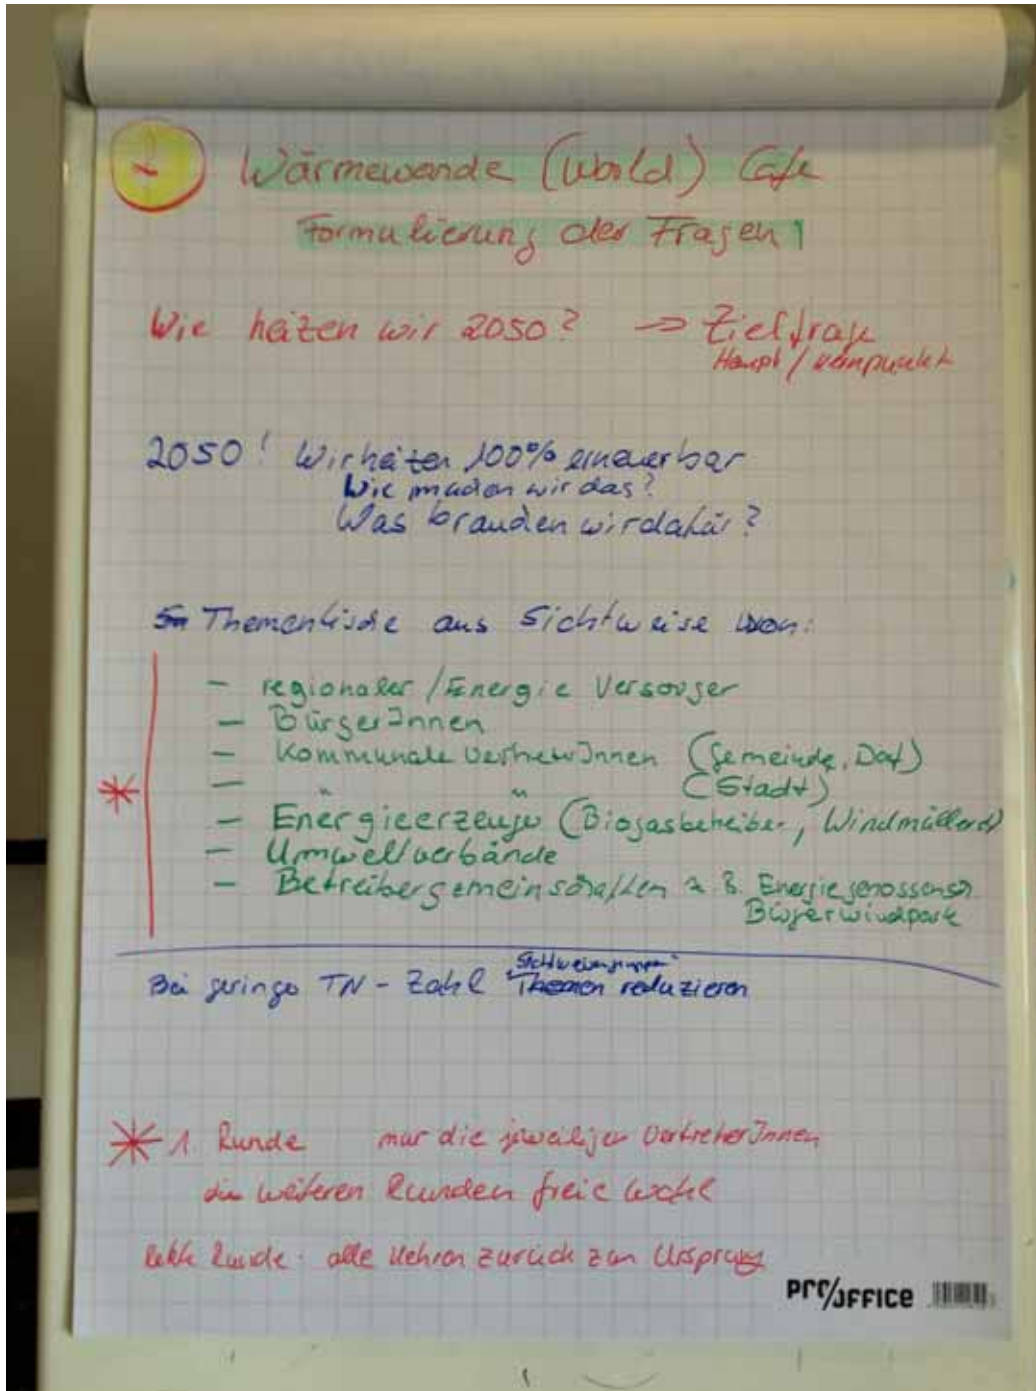 Wärmewende (World) Cafe
Formulierung der Fragen!
Wie heizen wir 2050? → Zielfrage
Haupt / Kernpunkt
2050! Wir heizen 100% erneuerbar
Wie machen wir das?
Was brauchen wir dafür?
Thementische aus Sichtweise von:
- regionaler / Energie Versorger
- BürgerInnen
- Kommunale VertreterInnen (Gemeinde, Dorf)
- " " (Stadt)
- Energieerzeuger (Biogasbetreiber, Windmüller)
- Umweltverbände
- Betreibergemeinschaften z.B. Energiegenossensch
Bürgerwindpark
Sichtweisengruppen
Bei geringer TN-Zahl Themen reduzieren
* 1. Runde nur die jeweiligen VertreterInnen
die weiteren Runden freie Wahl
letzte Runde - alle kehren zurück zum Ursprung
pro/office